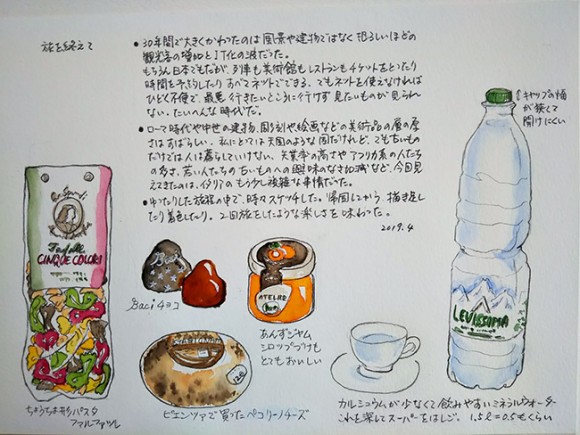 旅を終えて
●30年間で大きくかわったのは風景や建物ではなく恐ろしいほどの
観光客の増加とIT化の波だった。
もちろん日本でもだが、列車も美術館もレストランもチケットをとったり
時間を予約したりすべてネットでできる。でもネットを使えなければ
ひどく不便で、最悪行きたいところに行けず見たいものが見られ
ない。たいへんな時代だ。
●ローマ時代や中世の建物、彫刻や絵画などの美術品の層の厚
さはすばらしい。私にとっては天国のような国だけれど、でも古いもの
だけでは人は暮らしていけない。失業率の高さやアフリカ系の人たち
の多さ、若い人たちの古いものへの興味のなさ加減など、今回見
えてきたのは、イタリアのもう少し複雑な事情だった。
●ゆったりした旅程の中で、時々スケッチした。帰国してから描き足し
たり着色したり。2回旅をしたような楽しさを味わった。
2019.4
↑キャップの幅
が狭くて
開けにくい
CINQUE COLORI
Baci
Baciチョコ
ATELAR
あんずジャム
シロップづけも
とてもおいしい
LEVISSIMA
ちょうちょ形パスタ
ファルファッレ
ピエンツァで買ったペコリーノチーズ
カルシュウムが少なくて飲みやすいミネラルウォーター
これを探してスーパーをはしご。1.5L=0.5€くらい